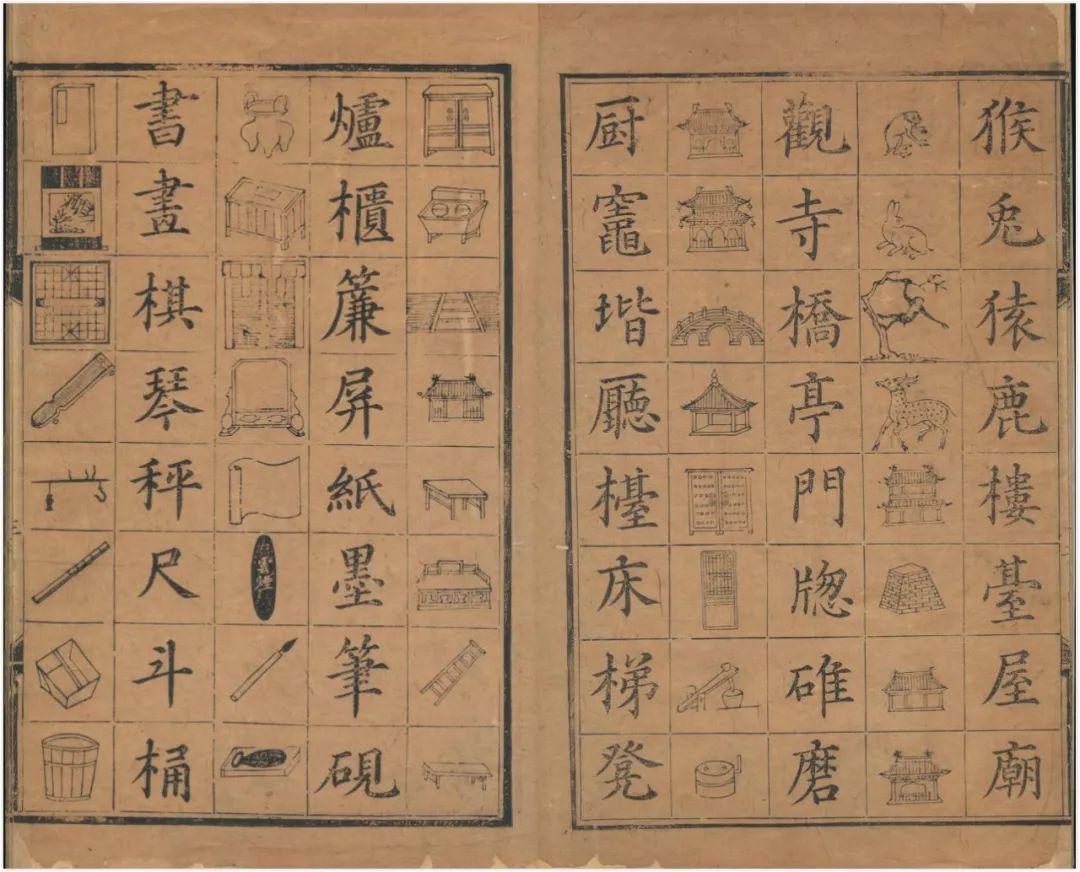 猴兎猿鹿樓臺屋廟
觀寺橋亭門牎碓磨
厨竈堦廳檯床梯凳
爐櫃簾屏紙墨筆硯
書畫棋琴秤尺斗桶